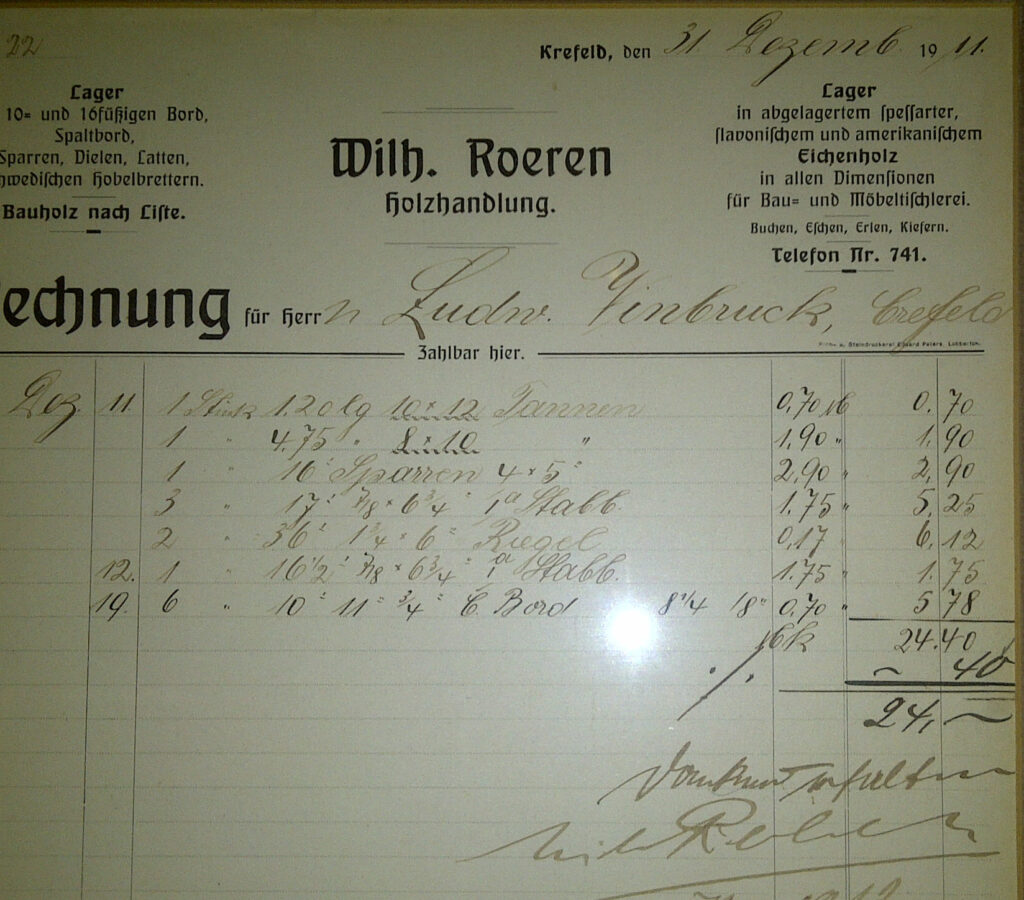 22
Krefeld, den 31. Dezemb. 1911.
Lager
10= und 16füßigen Bord,
Spaltbord,
Sparren, Dielen, Latten,
hwedischen Hobelbrettern.
Bauholz nach Liste.
Wilh. Roeren
Holzhandlung.
Lager
in abgelagertem spessarter,
slavonischem und amerikanischem
Eichenholz
in allen Dimensionen
für Bau= und Möbeltischlerei.
Buchen, Eschen, Erlen, Kiefern.
Telefon Nr. 741.
echnung für Herrn Ludw. Vinbruck, Crefeld
Zahlbar hier.
Dez. 11. 1 Stück 1.20 lg 10 x 12 Tannen 0,70 0.70
1 " 4.75 " 8 x 10 " 1,90 " 1,90
1 " 16' Sparren 4 x 5" 2,90 " 2,90
3 " 17' 7/8 x 6 3/4" Ia Stabb. 1.75 " 5,25
2 " 36' 1 3/4 x 6" Riegel 0,17 6,12
12. 1 " 16 1/2' 7/8 x 6 3/4" Ia Stabb. 1.75 " 1.75
19. 6 " 10' 11" 3/4" C. Bord 8 1/4 18" 0,70 " 5 78
24.40
40
24,—